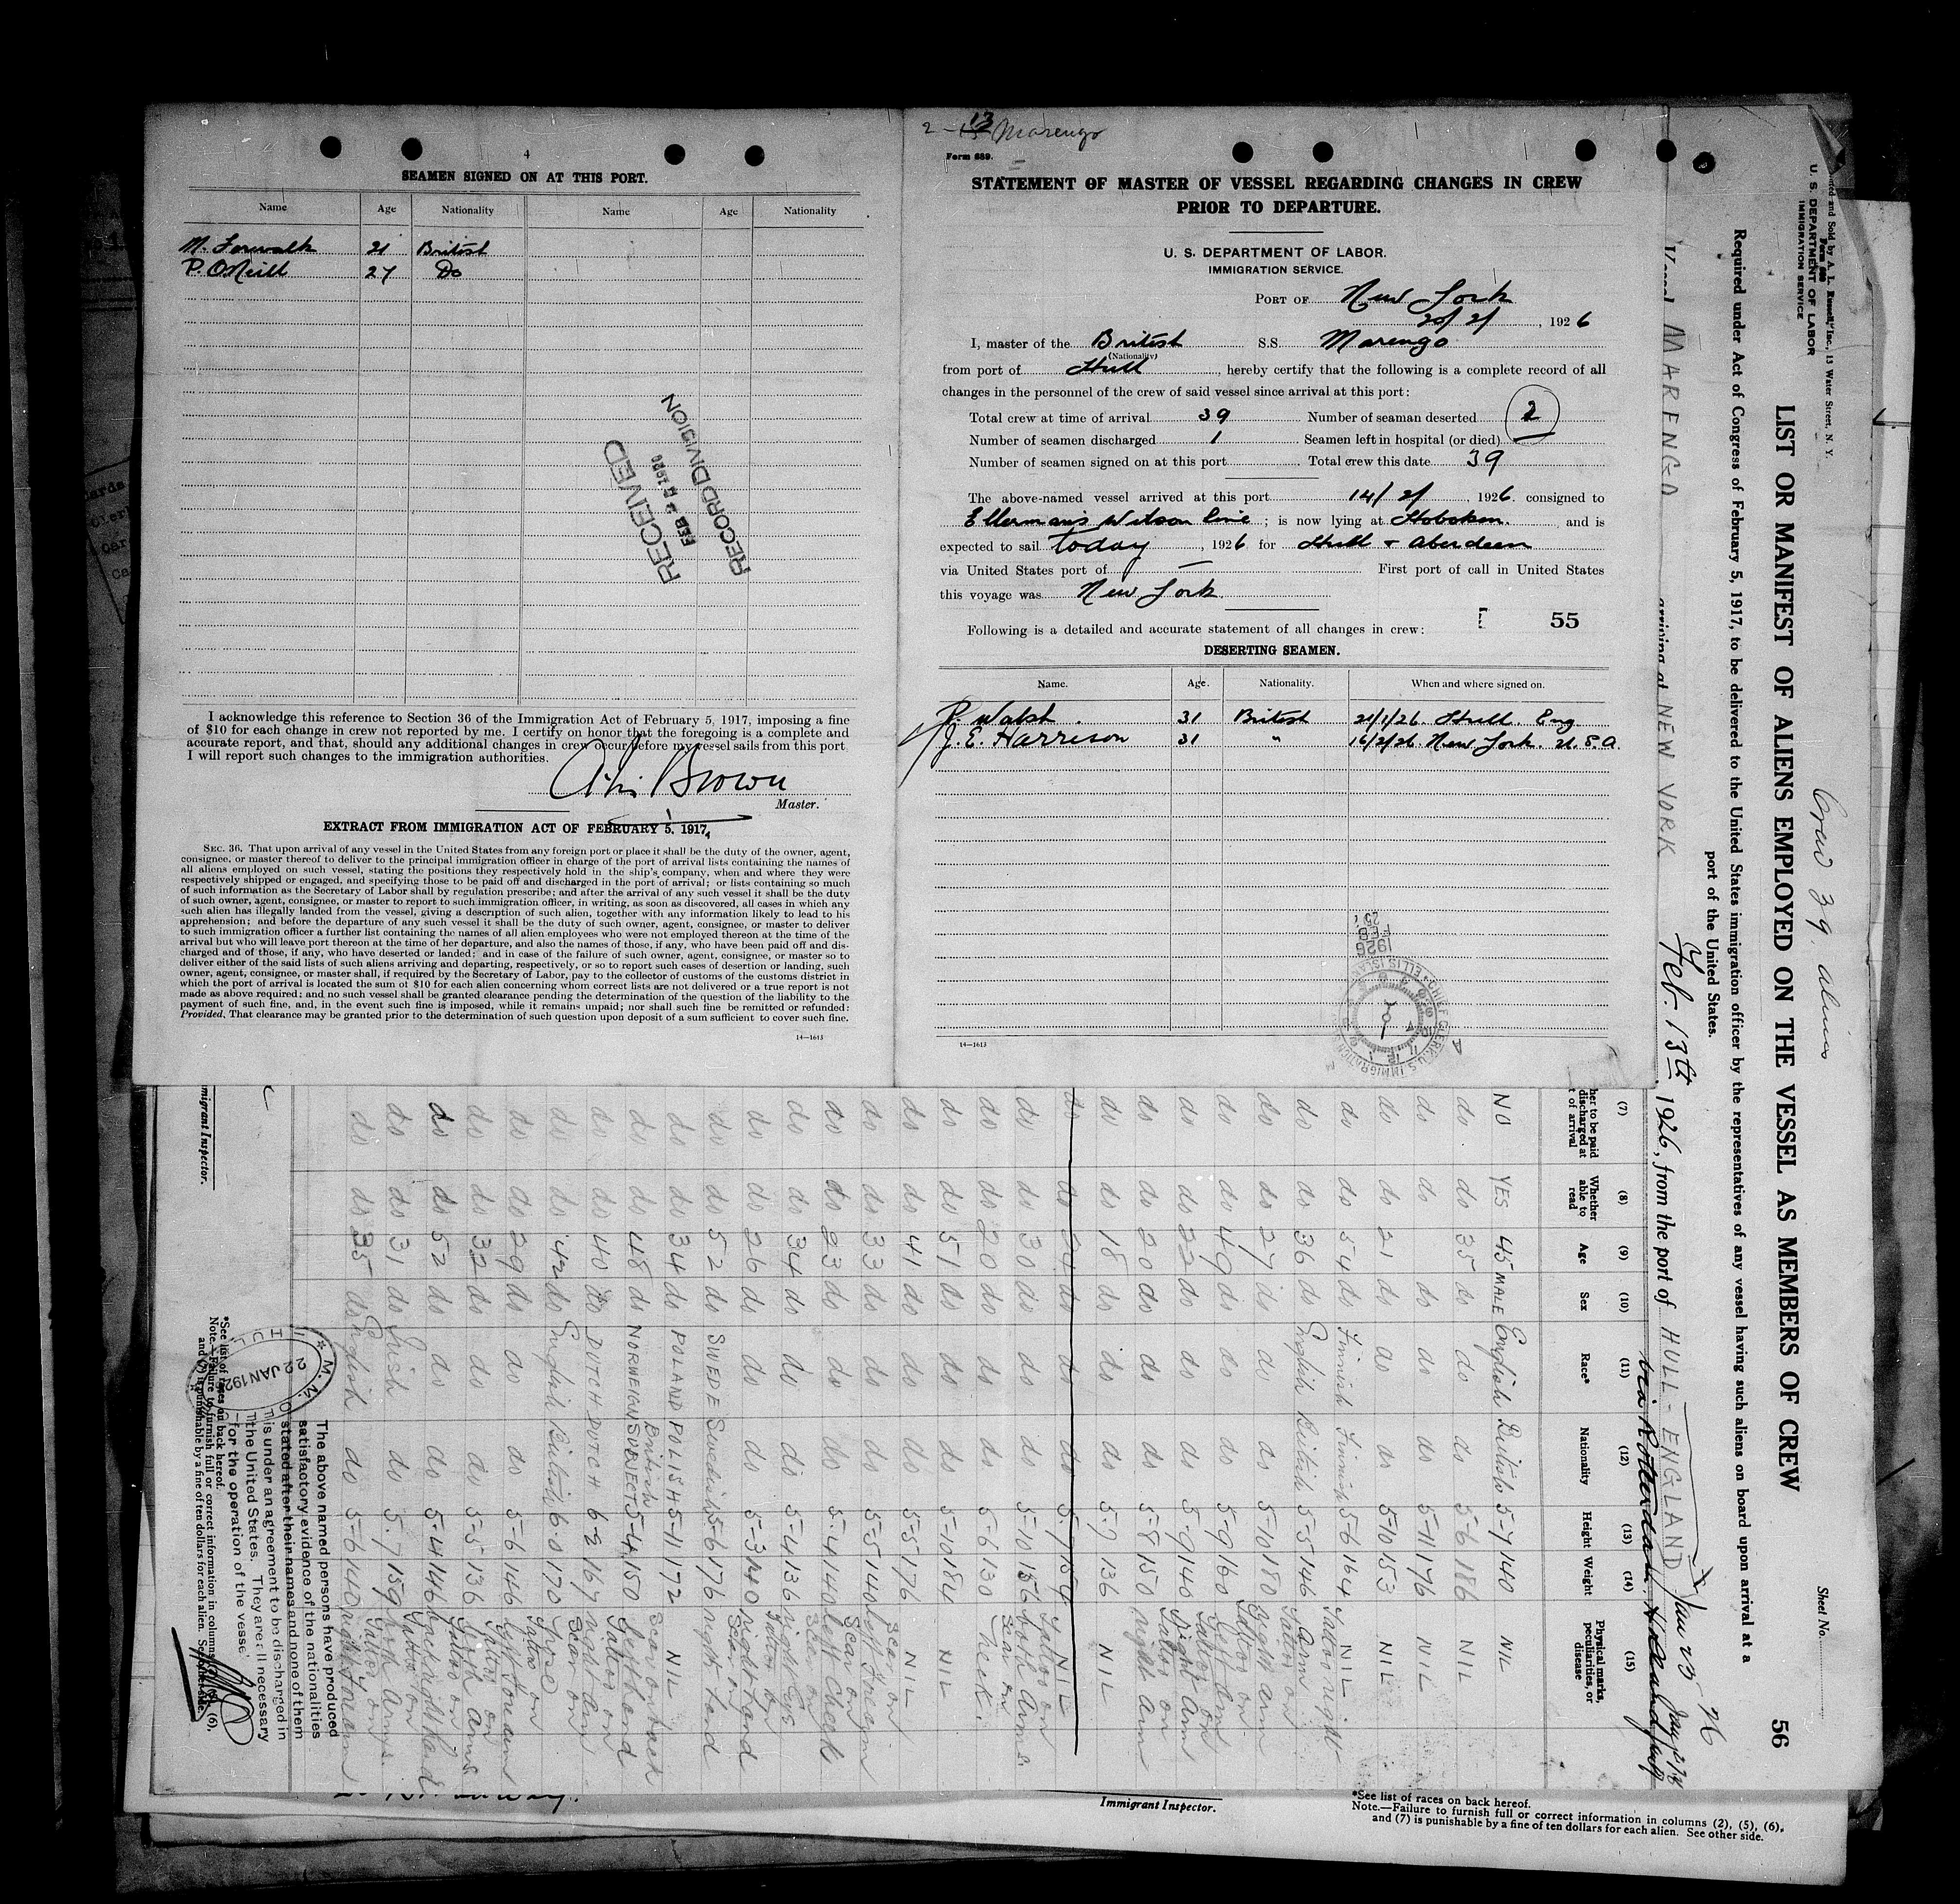 4
SEAMEN SIGNED ON AT THIS PORT.
Name Age Nationality Name Age Nationality
M. 21 British
P. O'Neill 27 Do
RECEIVED
FEB 1926
RECORD DIVISION
I acknowledge this reference to Section 36 of the Immigration Act of February 5, 1917, imposing a fine
of $10 for each change in crew not reported by me. I certify on honor that the foregoing is a complete and
accurate report, and that, should any additional changes in crew occur before my vessel sails from this port
I will report such changes to the immigration authorities.
Brown
Master.
EXTRACT FROM IMMIGRATION ACT OF FEBRUARY 5, 1917.
SEC. 36. That upon arrival of any vessel in the United States from any foreign port or place it shall be the duty of the owner, agent,
consignee, or master thereof to deliver to the principal immigration officer in charge of the port of arrival lists containing the names of
all aliens employed on such vessel, stating the positions they respectively hold in the ship's company, when and where they were
respectively shipped or engaged, and specifying those to be paid off and discharged in the port of arrival; or lists containing so much
of such information as the Secretary of Labor shall by regulation prescribe; and after the arrival of any such vessel it shall be the duty
of such owner, agent, consignee, or master to report to such immigration officer, in writing, as soon as discovered, all cases in which any
such alien has illegally landed from the vessel, giving a description of such alien, together with any information likely to lead to his
apprehension; and before the departure of any such vessel it shall be the duty of such owner, agent, consignee, or master to deliver
to such immigration officer a further list containing the names of all alien employees who were not employed thereon at the time of the
arrival but who will leave port thereon at the time of her departure, and also the names of those, if any, who have been paid off and dis-
charged and of those, if any, who have deserted or landed; and in case of the failure of such owner, agent, consignee, or master so to
deliver either of the said lists of such aliens arriving and departing, respectively, or so to report such cases of desertion or landing, such
owner, agent, consignee, or master shall, if required by the Secretary of Labor, pay to the collector of customs of the customs district in
which the port of arrival is located the sum of $10 for each alien concerning whom correct lists are not delivered or a true report is not
made as above required; and no such vessel shall be granted clearance pending the determination of the question of the liability to the
payment of such fine, and, in the event such fine is imposed, while it remains unpaid; nor shall such fine be remitted or refunded:
Provided, That clearance may be granted prior to the determination of such question upon deposit of a sum sufficient to cover such fine.
14—1613
2-13 Marengo
Form 689.
STATEMENT OF MASTER OF VESSEL REGARDING CHANGES IN CREW
PRIOR TO DEPARTURE.
U. S. DEPARTMENT OF LABOR.
IMMIGRATION SERVICE.
PORT OF New York
20/2/, 1926
I, master of the British S.S. Marengo
(Nationality)
from port of Hull, hereby certify that the following is a complete record of all
changes in the personnel of the crew of said vessel since arrival at this port:
Total crew at time of arrival 39 Number of seaman deserted 2
Number of seamen discharged 1 Seamen left in hospital (or died) —
Number of seamen signed on at this port Total crew this date 39
The above-named vessel arrived at this port 14/2/, 1926. consigned to
Ellerman's Wilson Line; is now lying at Hoboken. and is
expected to sail today, 1926 for Hull + Aberdeen
via United States port of — First port of call in United States
this voyage was New York
55
Following is a detailed and accurate statement of all changes in crew:
DESERTING SEAMEN.
Name. Age. Nationality. When and where signed on.
P. Walsh. 31 British 21/1/26. Hull. Eng
J. E. Harrison 31 " 16/2/26. New York. U.S.A.
14—1613
Printed and Sold by A. L. Russell, Inc., 13 Water Street, N. Y.
U. S. DEPARTMENT OF LABOR
IMMIGRATION SERVICE
Crew 39. aliens
Sheet No.
LIST OR MANIFEST OF ALIENS EMPLOYED ON THE VESSEL AS MEMBERS OF CREW
56
Required under Act of Congress of February 5, 1917, to be delivered to the United States immigration officer by the representatives of any vessel having such aliens on board upon arrival at a
port of the United States.
Vessel MARENGO arriving at NEW YORK Feb. 13th, 1926, from the port of HULL - ENGLAND Jan 23-26
via Rotterdam Holland
(7) (8) (9) (10) (11) (12) (13) (14) (15)
Whether able to read Age Sex Race* Nationality Height Weight Physical marks, peculiarities, or disease
NO YES 45 MALE English British 5-7 140 NIL
do do 35 do do do 5-6 186 NIL
do do do do 5-11 176 NIL
do do 21 do do do 5-10 153 NIL
do do 54 do Finnish Finnish 5-6 164 NIL
do do 36 do English British 5-5 146
do do 27 do do do 5-10 180
do do 49 do do do 5-9 160
do do 22 do do do 5-9 140
do do 20 do do do 5-8 150
do do 18 do do do 5-7 136 NIL
do do 24 do do do 5-7 154 NIL
do do 30 do do do 5-10 156
do do 20 do do do 5-6 130
do do 51 do do do 5-10 184 NIL
do do 41 do do do 5-5 176 NIL
do do 33 do do do 5-5 140
do do 23 do do do 5-4 140
do do 34 do do do 5-4 136
do do 26 do do do 5-3 140
do do 52 do SWEDE Swedish 5-6 176
do do 34 do POLAND POLISH 5-11 172 NIL
do do 48 do NORWEIGN British SUBJECT 5-4 150
do do 40 do DUTCH DUTCH 6-2 167
do do 42 do English British 6-0 170
do do 29 do do do 5-6 146
do do 32 do do do 5-5 136
do do 52 do do do 5-4 146
do do 31 do Irish do 5-7 159
do do 35 do English do 5-6 140
The above named persons have produced
satisfactory evidence of the nationalities
stated after their names and none of them
is under an agreement to be discharged in
the United States. They are all necessary
for the operation of the vessel
*See list of races on back hereof.
Note.—Failure to furnish full or correct information in columns (2), (5), (6),
and (7) is punishable by a fine of ten dollars for each alien. See other side.
Immigrant Inspector.
Immigrant Inspector.
*See list of races on back hereof.
Note.—Failure to furnish full or correct information in columns (2), (5), (6),
and (7) is punishable by a fine of ten dollars for each alien. See other side.